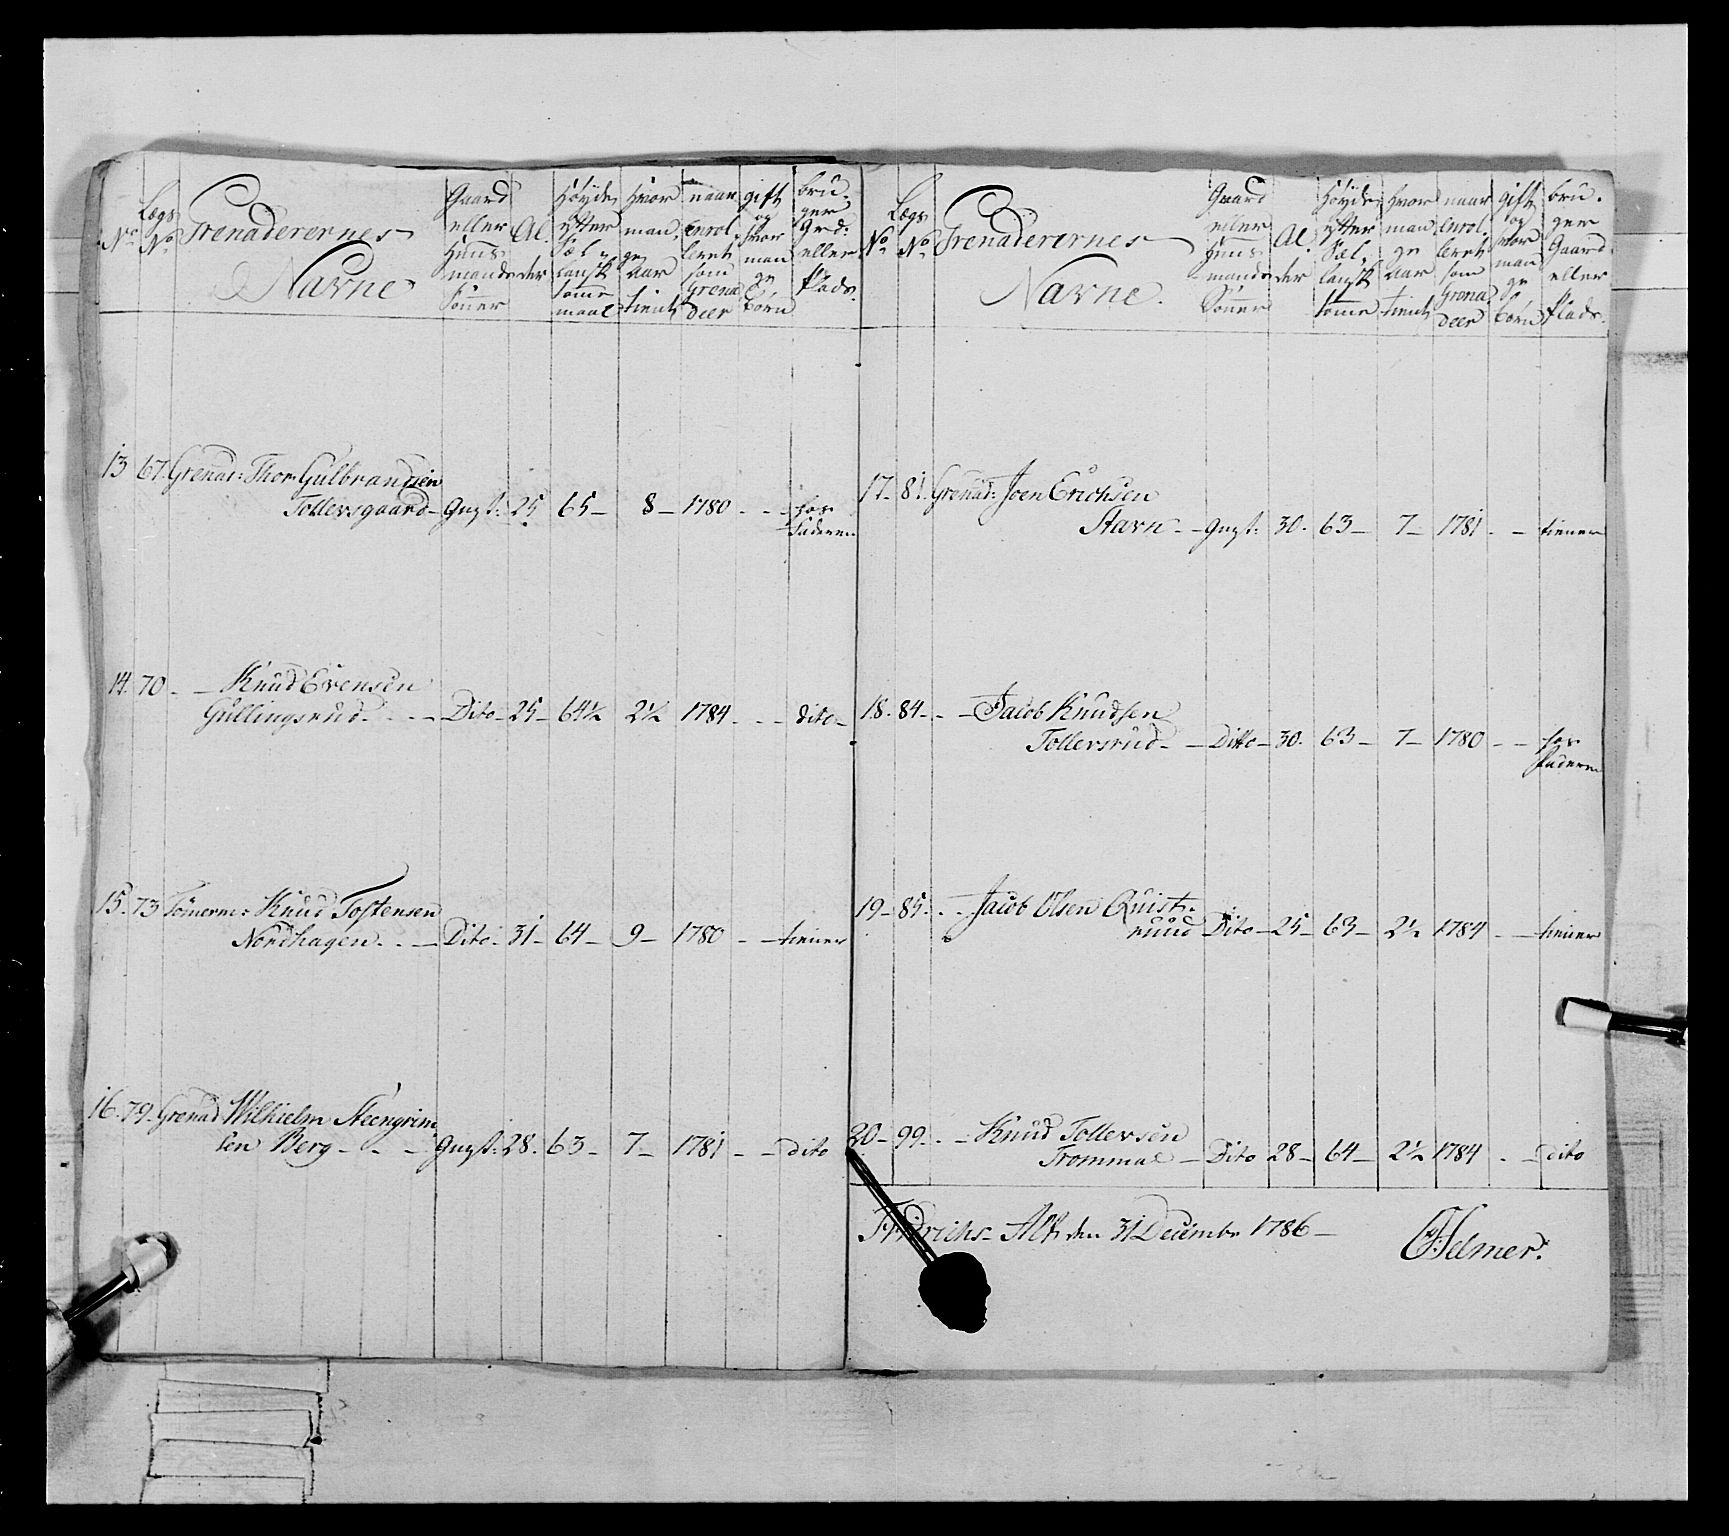 No
Lægs No
Grenaderernes
Navne
Gaard eller Huus mands Sönner
Al der
Höyde efter Sæl landsk tomme maal
Hvor man ge aar tient
naar Enrol leret som Grena deer
gift og hvor man ge Börn
bru ger Grd: eller Plads.
13 67. Grenad: Thor Gulbrandsen
Tollersgaard – Gugst: 25 65 – 8 – 1780 - - hos
Faderen
14. 70 - – Knud Evensen
Gullingsrud - - – Dito – 25 – 64½ 2½ 1784 - - dito –
15. 73 Tömerm: Knud Tostensen
Nordhagen - - – Dito - 31 – 64 – 9 – 1780 - – tiener
16. 79. Grenad Wilhielm Steengrim
sen Berg - - - Gugst: 28. 63 – 7 – 1781 - – dito
No
Lægs No
Grenaderernes
Navne.
Gaard eller Huus mands Sönner
Al der
Höyde efter Sæl landsk tomme
Hvor man ge aar tient
naar Enrol leret som Grena deer
gift og hvor man ge Börn
bru ger Gaard eller Plads.
17. 81. Grenad: Joen Erichsen
Stavn - – Gugst: 30. 63 – 7 – 1781 - – tiener
18. 84 - - – Jacob Knudsen
Tollersrud - – Ditto – 30. 63 – 7 – 1780 - – hos
Faderen
19 – 85. - - Jacob Olsen Quist-
ruud Dito – 25 – 63 – 2½ 1784 - – tiener
20 – 99. - – Knud Tollersen
Trommal – Dito 28 – 64 – 2½ 1784 - – dito
Fridrichs – Ald den 31 Decembr 1786 –
Helmer.